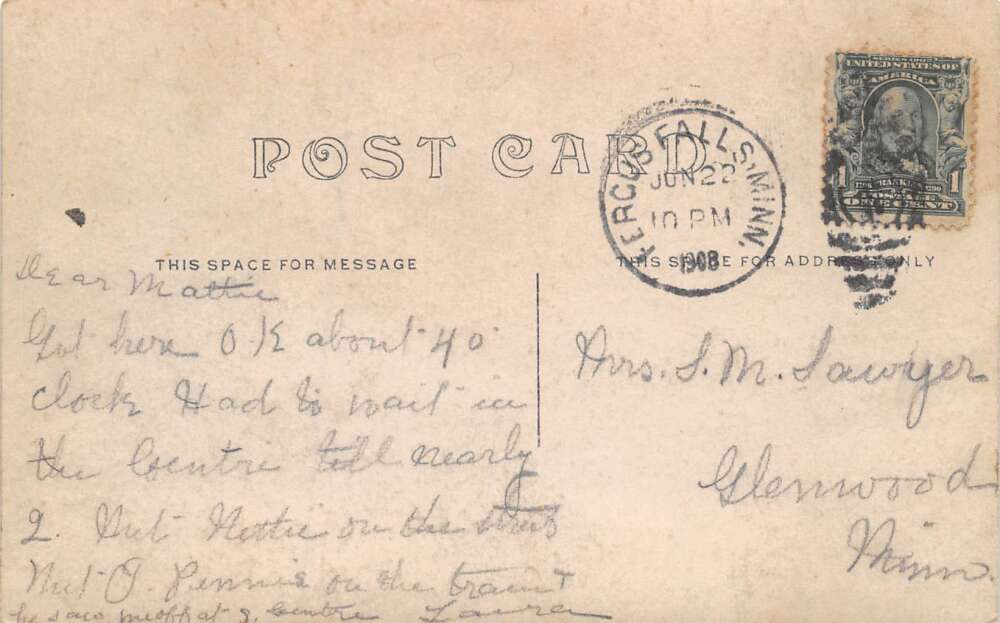 POST CARD
FERGUS FALLS, MINN.
JUN 22
10 PM
1908
SERIES 1902
UNITED STATES OF
AMERICA
1 FRANKLIN 1
ONE CENT
THIS SPACE FOR MESSAGE
THIS SPACE FOR ADDRESS ONLY
Dear Mattie
Got here O.K about 4 o
clock Had to wait in
the Centre till nearly
2. Met Hattie on the
Met J. Pennie on the train +
he saw me off at S. Centre Laura
Mrs. S. M. Sawyer
Glenwood
Minn.